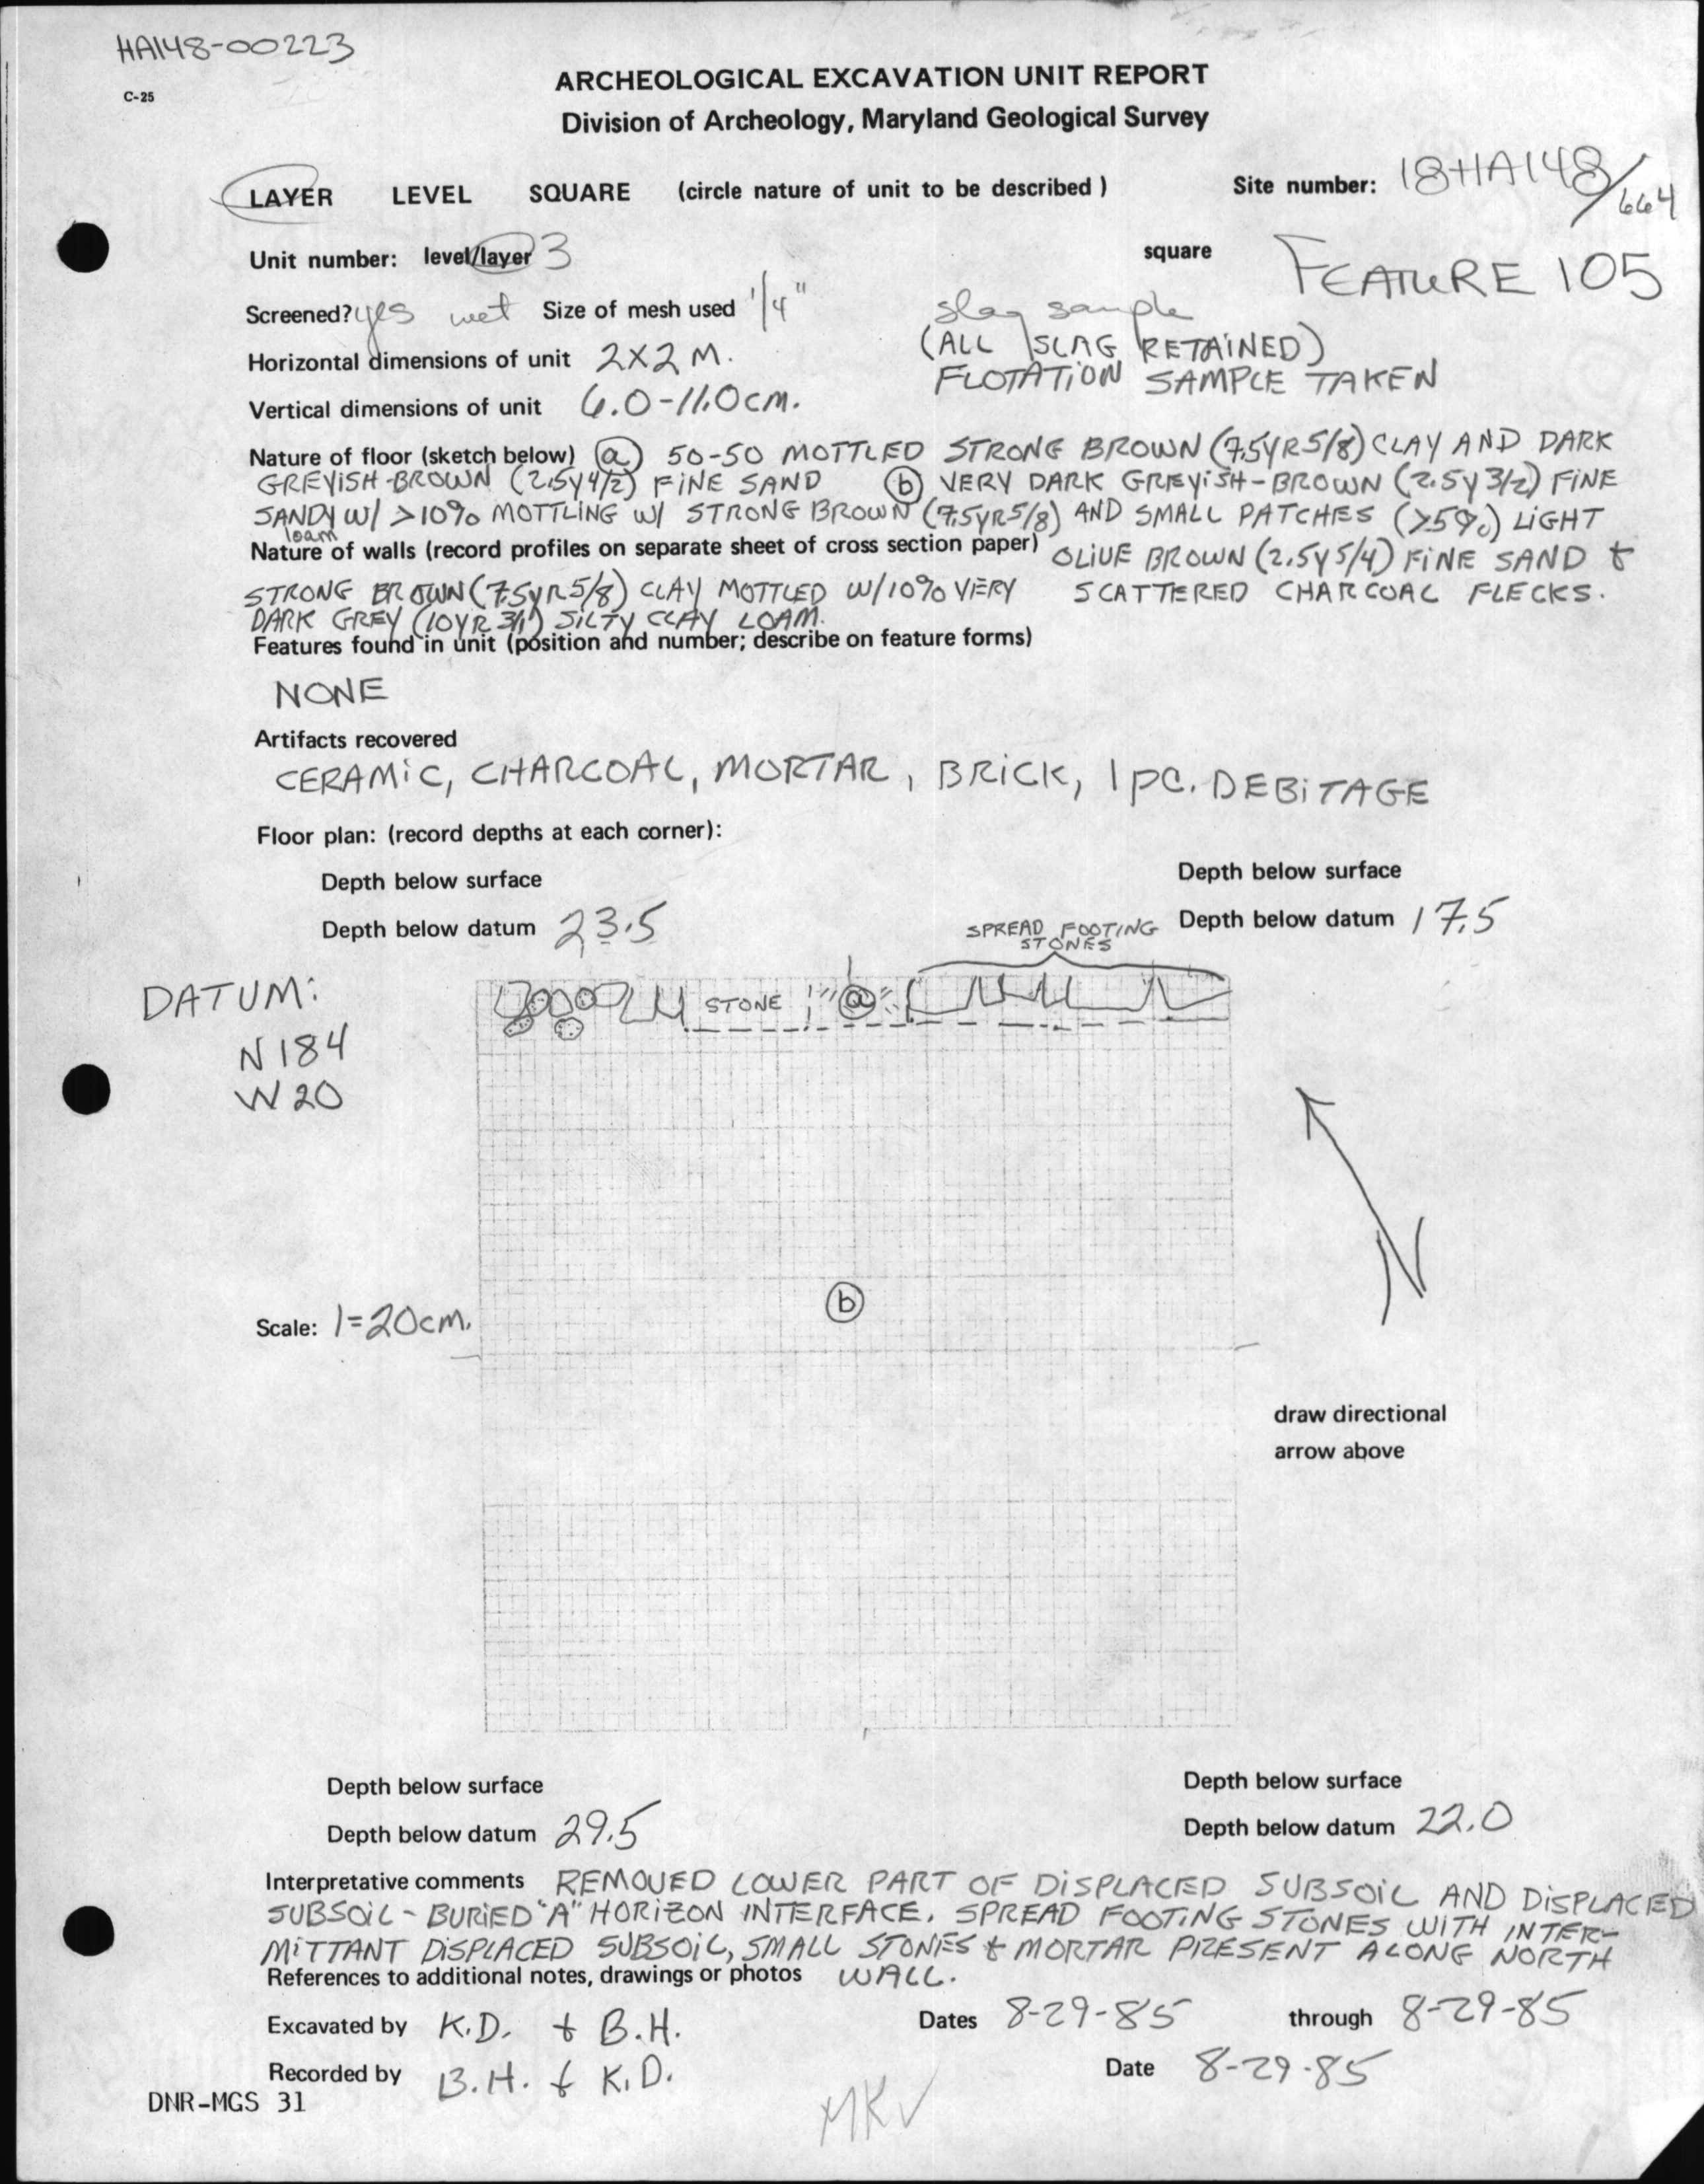 HA148-00223
C-25
ARCHEOLOGICAL EXCAVATION UNIT REPORT
Division of Archeology, Maryland Geological Survey
LAYER LEVEL SQUARE (circle nature of unit to be described ) Site number: 18HA148/664
Unit number: level/layer 3 square FEATURE 105
Screened? yes wet Size of mesh used 1/4" slag sample
(ALL SLAG RETAINED)
Horizontal dimensions of unit 2X2 M.
FLOTATION SAMPLE TAKEN
Vertical dimensions of unit 6.0-11.0cm.
Nature of floor (sketch below) (a) 50-50 MOTTLED STRONG BROWN (7.5YR5/8) CLAY AND DARK
GREYISH-BROWN (2.5Y4/2) FINE SAND (b) VERY DARK GREYISH-BROWN (2.5Y3/2) FINE
SANDY loam W/ >10% MOTTLING W/ STRONG BROWN (7.5YR5/8) AND SMALL PATCHES (>5%) LIGHT
Nature of walls (record profiles on separate sheet of cross section paper) OLIVE BROWN (2.5Y5/4) FINE SAND &
STRONG BROWN (7.5YR5/8) CLAY MOTTLED W/10% VERY SCATTERED CHARCOAL FLECKS.
DARK GREY (10YR 3/1) SILTY CLAY LOAM.
Features found in unit (position and number; describe on feature forms)
NONE
Artifacts recovered
CERAMIC, CHARCOAL, MORTAR, BRICK, 1 PC. DEBITAGE
Floor plan: (record depths at each corner):
Depth below surface Depth below surface
Depth below datum 23.5 Depth below datum 17.5
SPREAD FOOTING
STONES
DATUM:
N 184
W 20
STONE (a)
N
(b)
Scale: 1=20cm.
draw directional
arrow above
Depth below surface Depth below surface
Depth below datum 29.5 Depth below datum 22.0
Interpretative comments REMOVED LOWER PART OF DISPLACED SUBSOIL AND DISPLACED
SUBSOIL - BURIED "A" HORIZON INTERFACE. SPREAD FOOTING STONES WITH INTER-
MITTANT DISPLACED SUBSOIL, SMALL STONES & MORTAR PRESENT ALONG NORTH
References to additional notes, drawings or photos WALL.
Excavated by K.D. & B.H. Dates 8-29-85 through 8-29-85
Recorded by B.H. & K.D. Date 8-29-85
DNR-MGS 31
MK✓